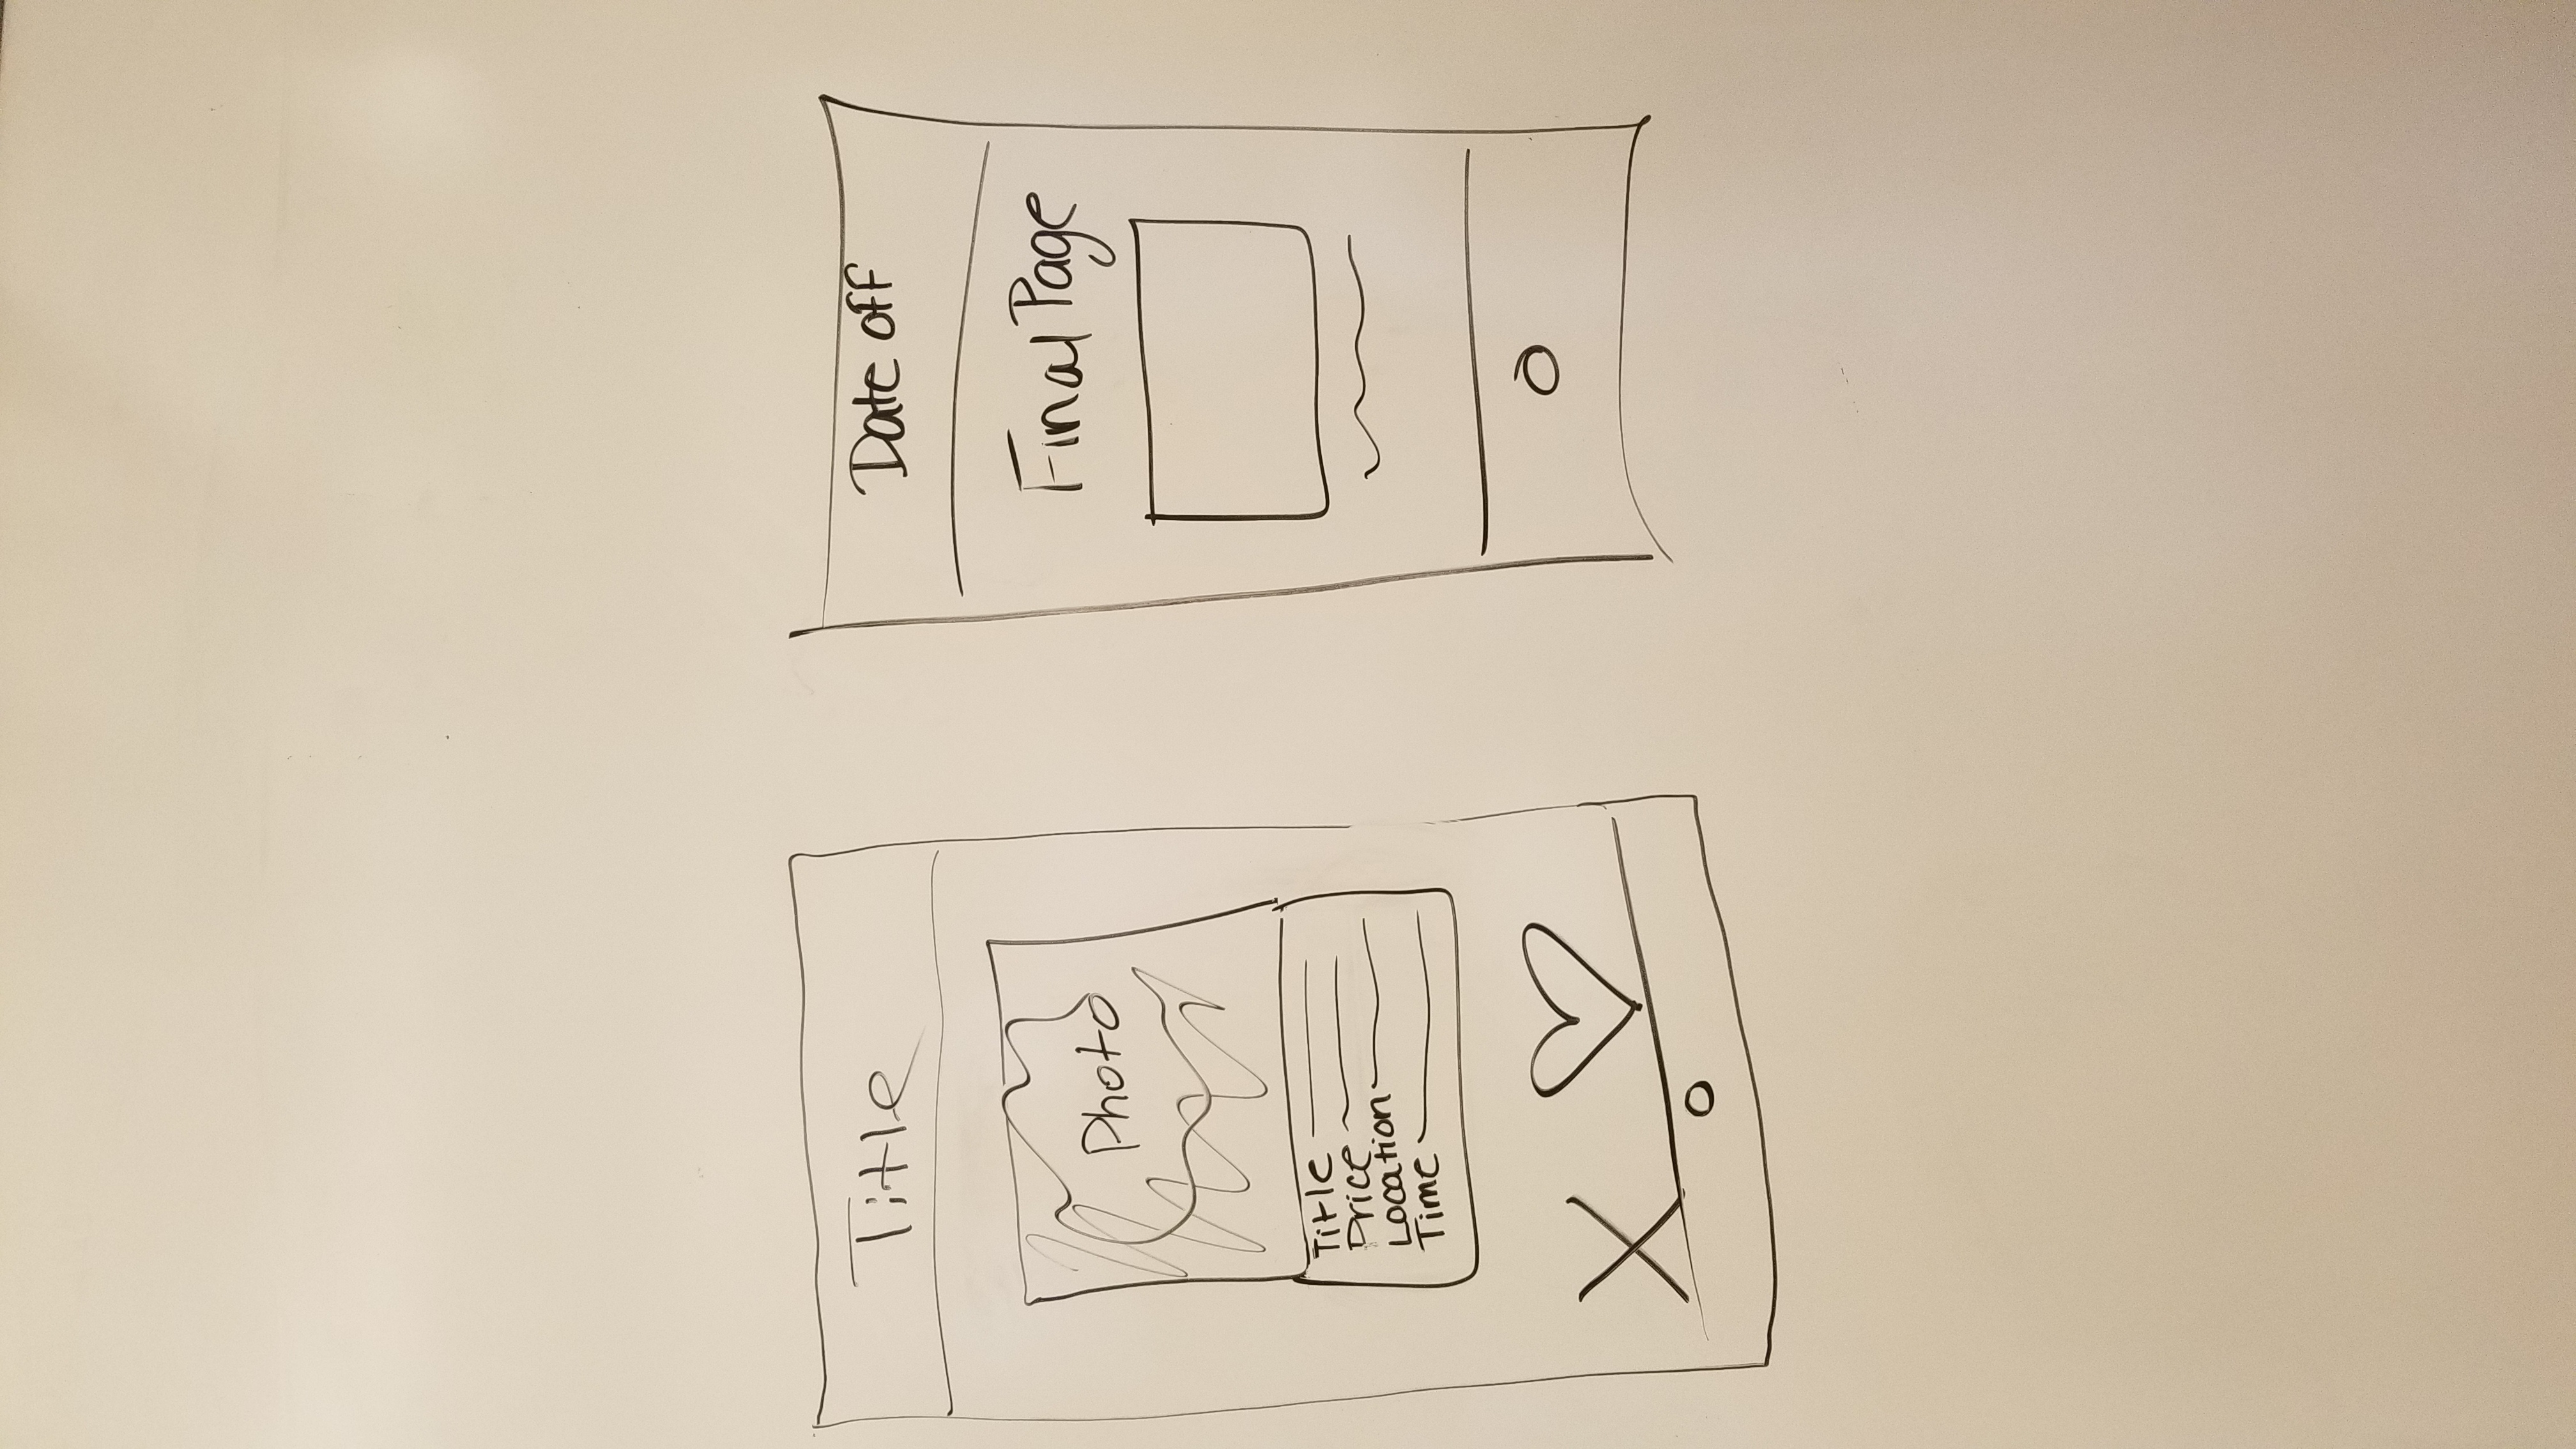 Title
Photo
Title
Price
Location
Time
X
Date off
Final Page